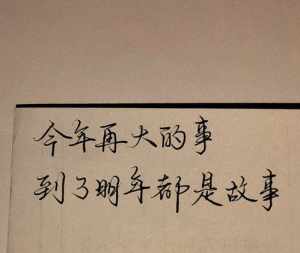 今年再大的事
到了明年都是故事